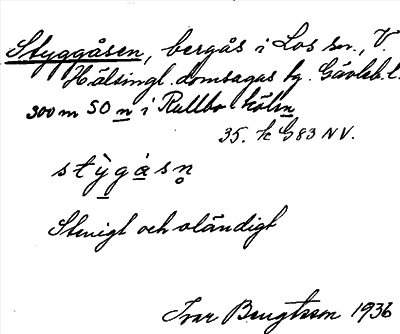 Styggåsen, bergås i Los sn., V.
Hälsingl. domsagas tg. Gävleb. l.
300 m SO n i Rullbo köln
35. k G83 NV.
stỳgàsn̥
Stenigt och oländigt
Ivar Bengtsson 1936